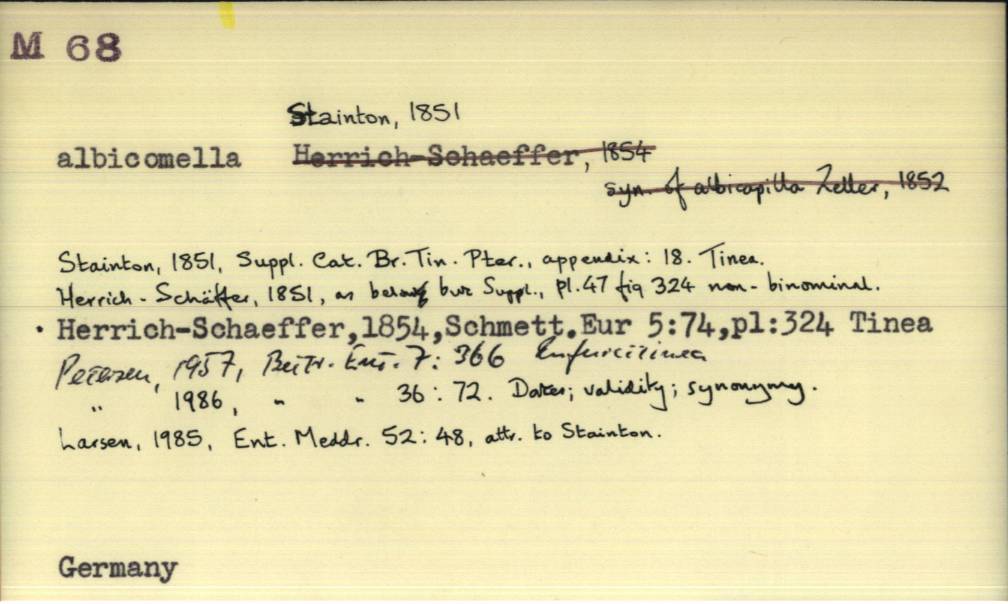 M 68
Stainton, 1851
albicomella Herrich-Schaeffer, 1854
syn. of albicapilla Zeller, 1852
Stainton, 1851, Suppl. Cat. Br. Tin. Pter., appendix: 18. Tinea.
Herrich-Schäffer, 1851, as below but Suppl., pl.47 fig 324 non-binominal.
• Herrich-Schaeffer,1854,Schmett.Eur 5:74,pl:324 Tinea
Petersen, 1957, Beitr. Ent. 7: 366 Infurcitinea
" 1986, " " 36: 72. Dates; validity; synonymy.
Larsen, 1985, Ent. Meddr. 52: 48, attr. to Stainton.
Germany